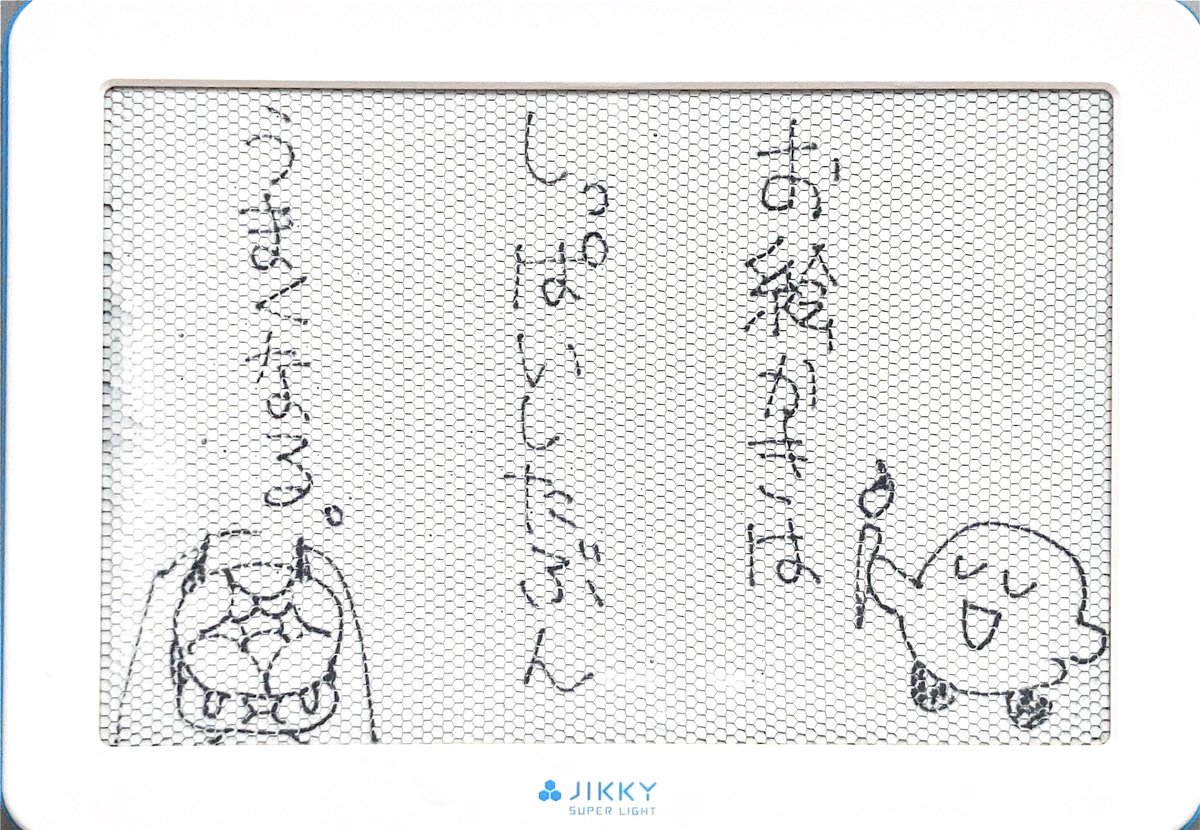 お絵かきは
しっぱいしたぶん
うまくなる。
JIKKY
SUPER LIGHT